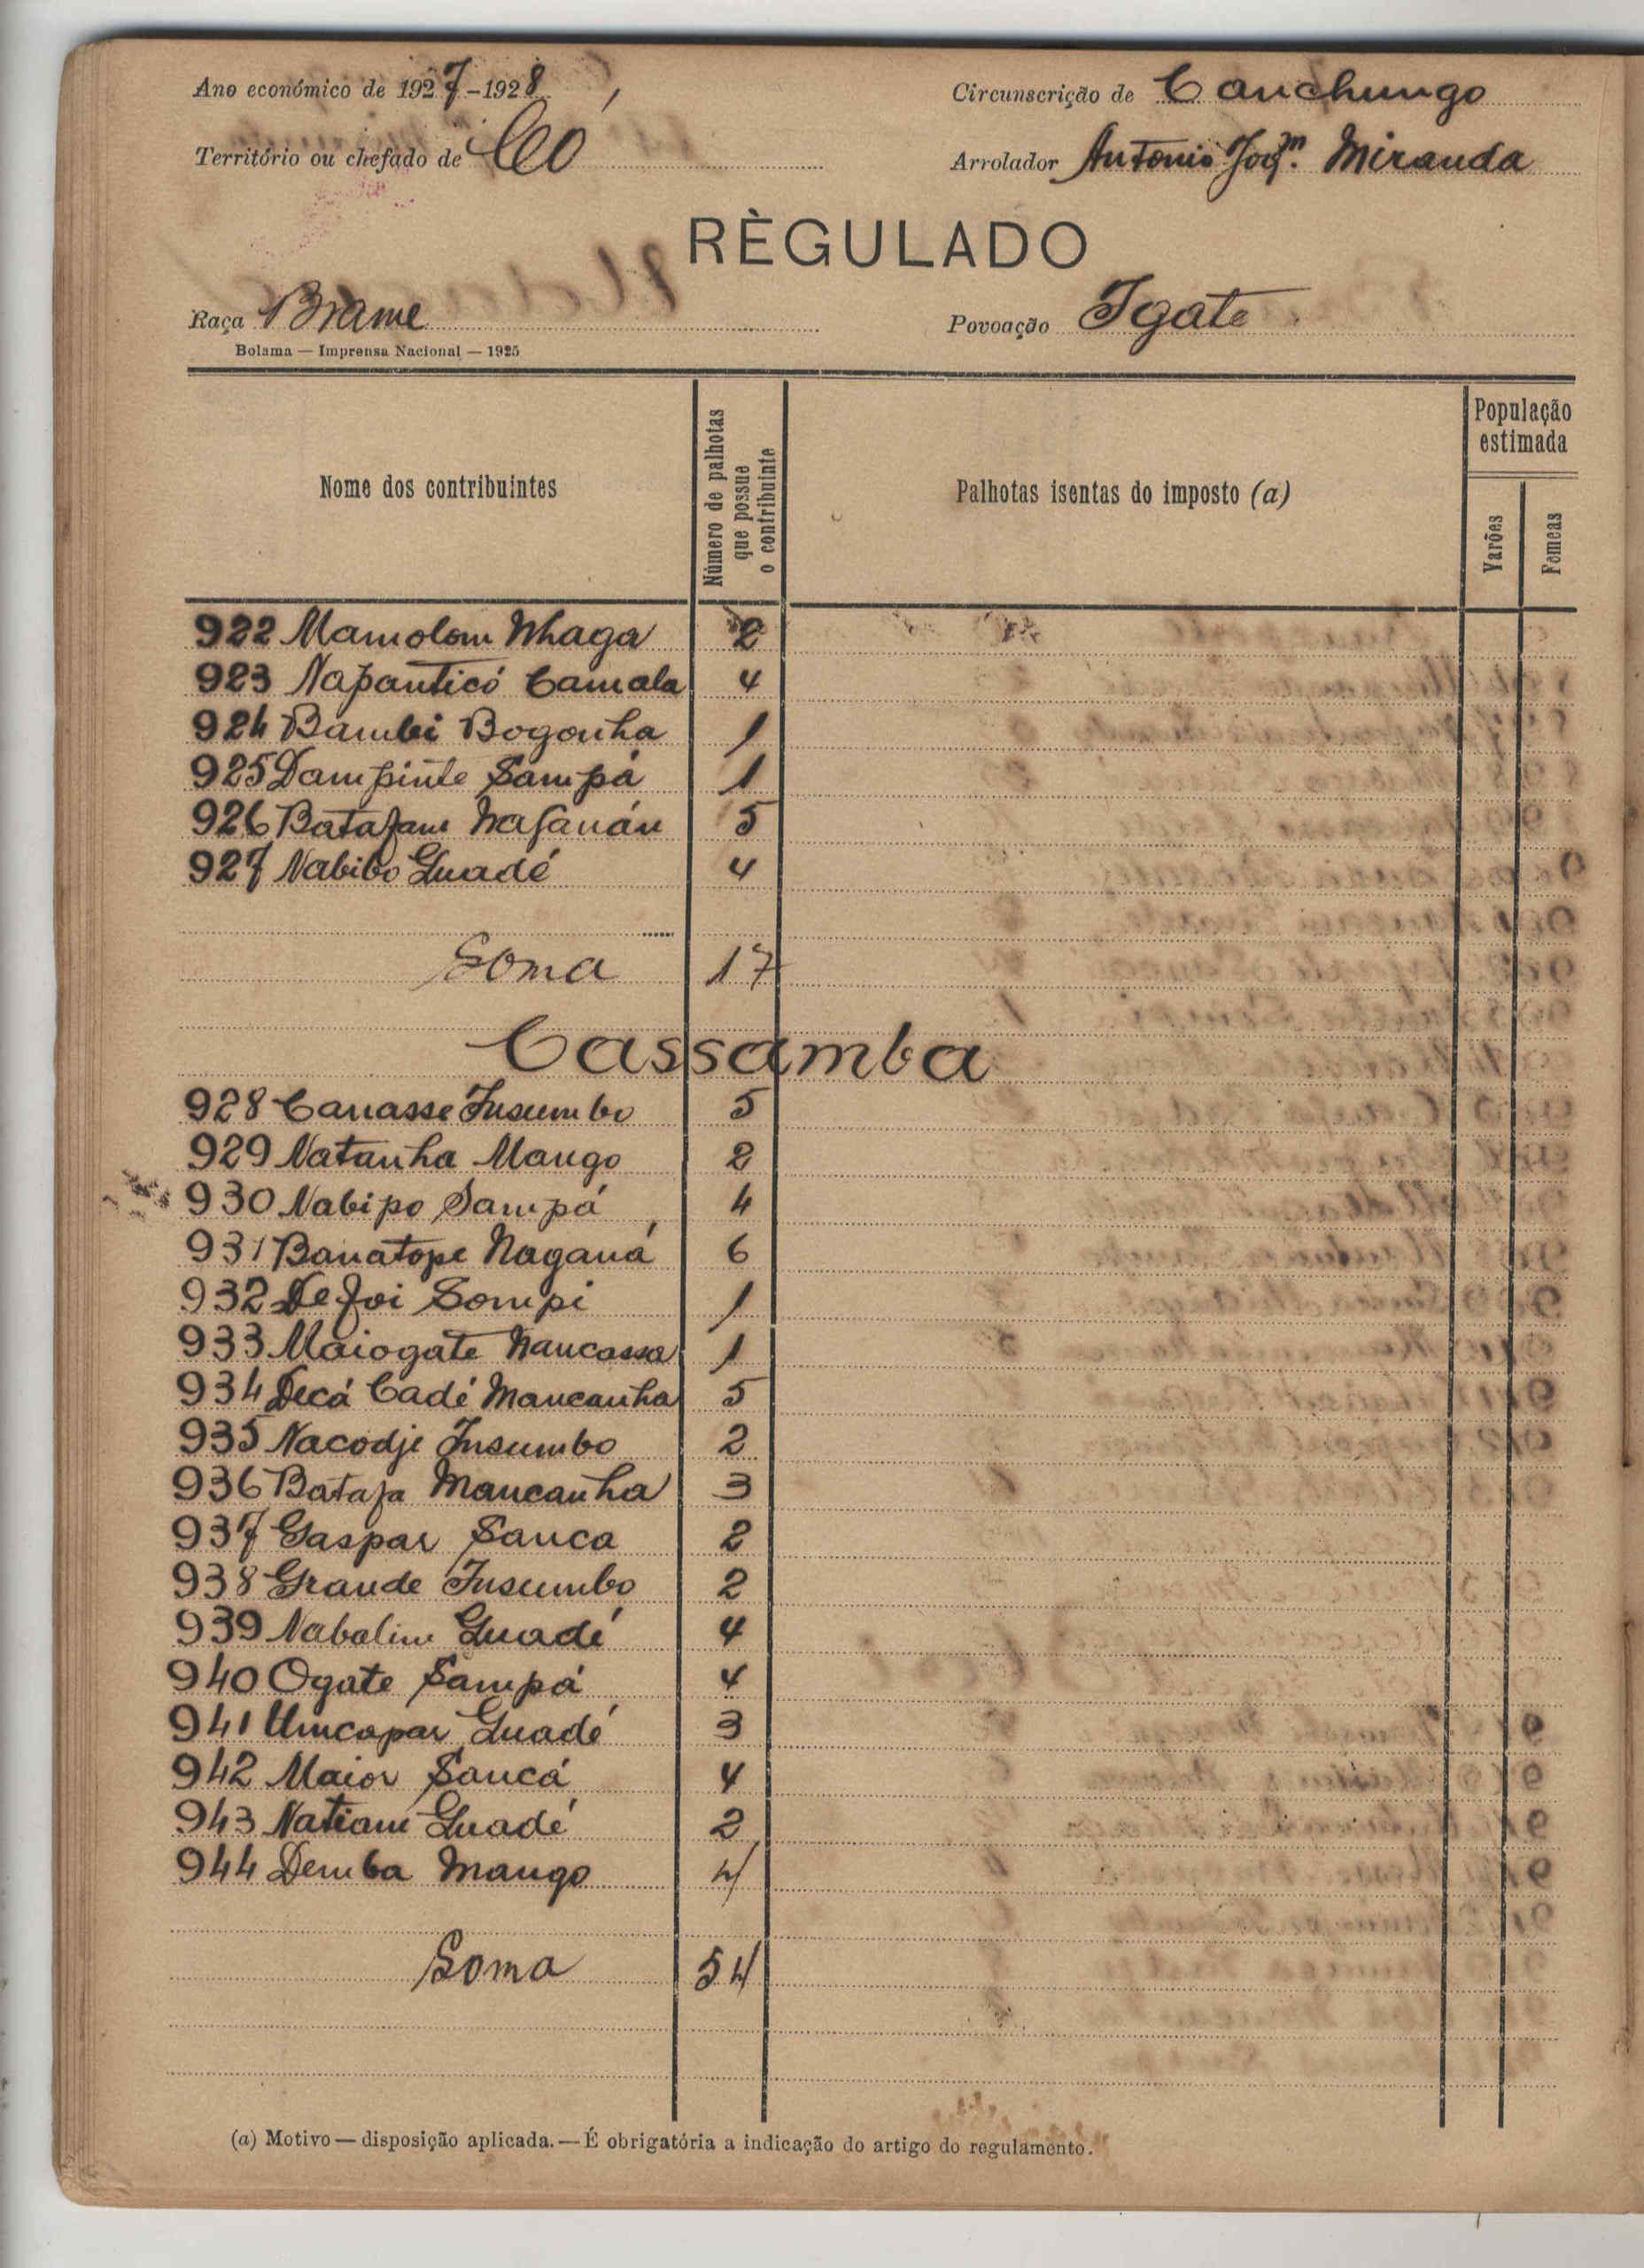 Ano económico de 1927-1928
Circunscrição de Canchungo
Território ou chefado de Có
Arrolador Antonio Joqm. Miranda
RÈGULADO
Raça Brame
Povoação Igate
Bolama — Imprensa Nacional — 1925
Nome dos contribuintes
Número de palhotas que possue o contribuinte
Palhotas isentas do imposto (a)
População estimada
Varões
Femeas
922 Mamolom Nhaga 2
923 Napanticó Camala 4
924 Bambi Bogonha 1
925 Dampinte Sampá 1
926 Batafam Nafanán 5
927 Nabibo Guadé 4
Soma 17
Cassamba
928 Canasse Insumbo 5
929 Natanha Mango 2
930 Nabipo Sampá 4
931 Banatope Naganá 6
932 Defoi Sompi 1
933 Maiogate Nancassa 1
934 Decá Cadé Mancanha 5
935 Nacodje Insumbo 2
936 Batafa Mancanha 3
937 Gaspar Sanca 2
938 Grande Insumbo 2
939 Nabalim Guadé 4
940 Ogate Sampá 4
941 Umcapar Guadé 3
942 Maior Sancá 4
943 Natiam Guadé 2
944 Demba Mango 4
Soma 54
(a) Motivo — disposição aplicada. — É obrigatória a indicação do artigo do regulamento.